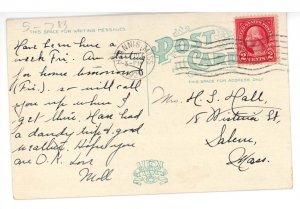 5-7
THIS SPACE FOR WRITING MESSAGES
POST
CARD
THIS SPACE FOR ADDRESS ONLY
2 CENTS 2
Have been here a
week Fri. Am starting
for home tomorrow
(Fri.) so will call
you up when I
get there. Have had
a dandy time & good
weather. Hope you
are O.K. Love
Moll
Mrs. H. S. Hall,
15 Wisteria St.
Salem,
Mass.